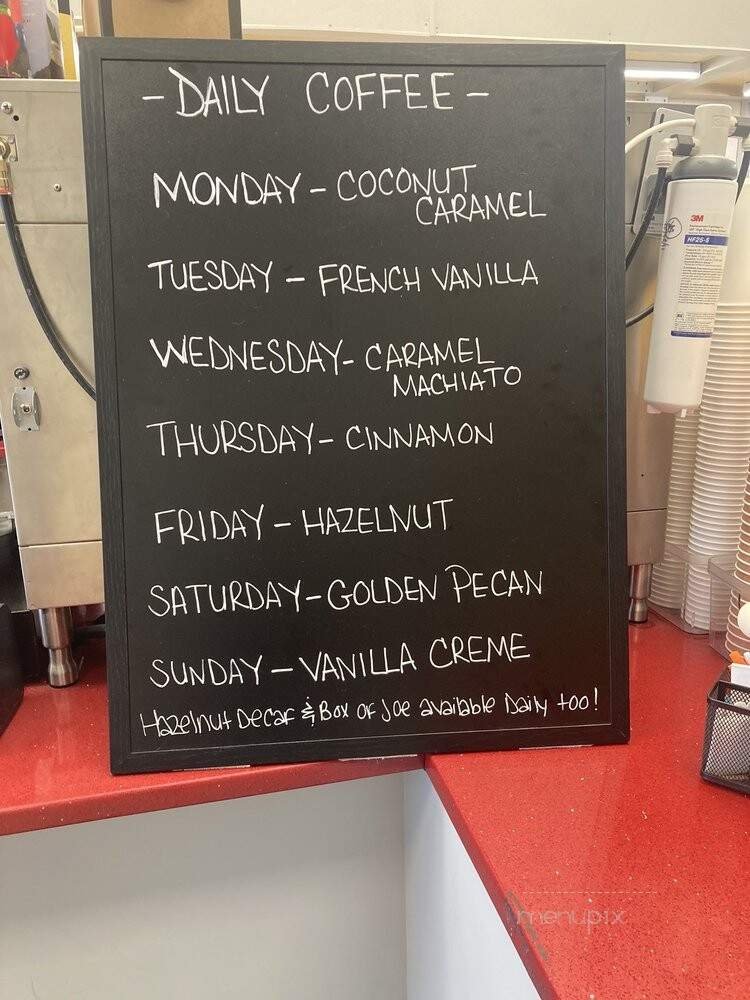 - DAILY COFFEE -
MONDAY - COCONUT
CARAMEL
TUESDAY - FRENCH VANILLA
WEDNESDAY- CARAMEL
MACHIATO
THURSDAY- CINNAMON
FRIDAY - HAZELNUT
SATURDAY-GOLDEN PECAN
SUNDAY - VANILLA CREME
Hazelnut Decaf & Box of Joe available Daily too!
3M
HF25-S
menupix